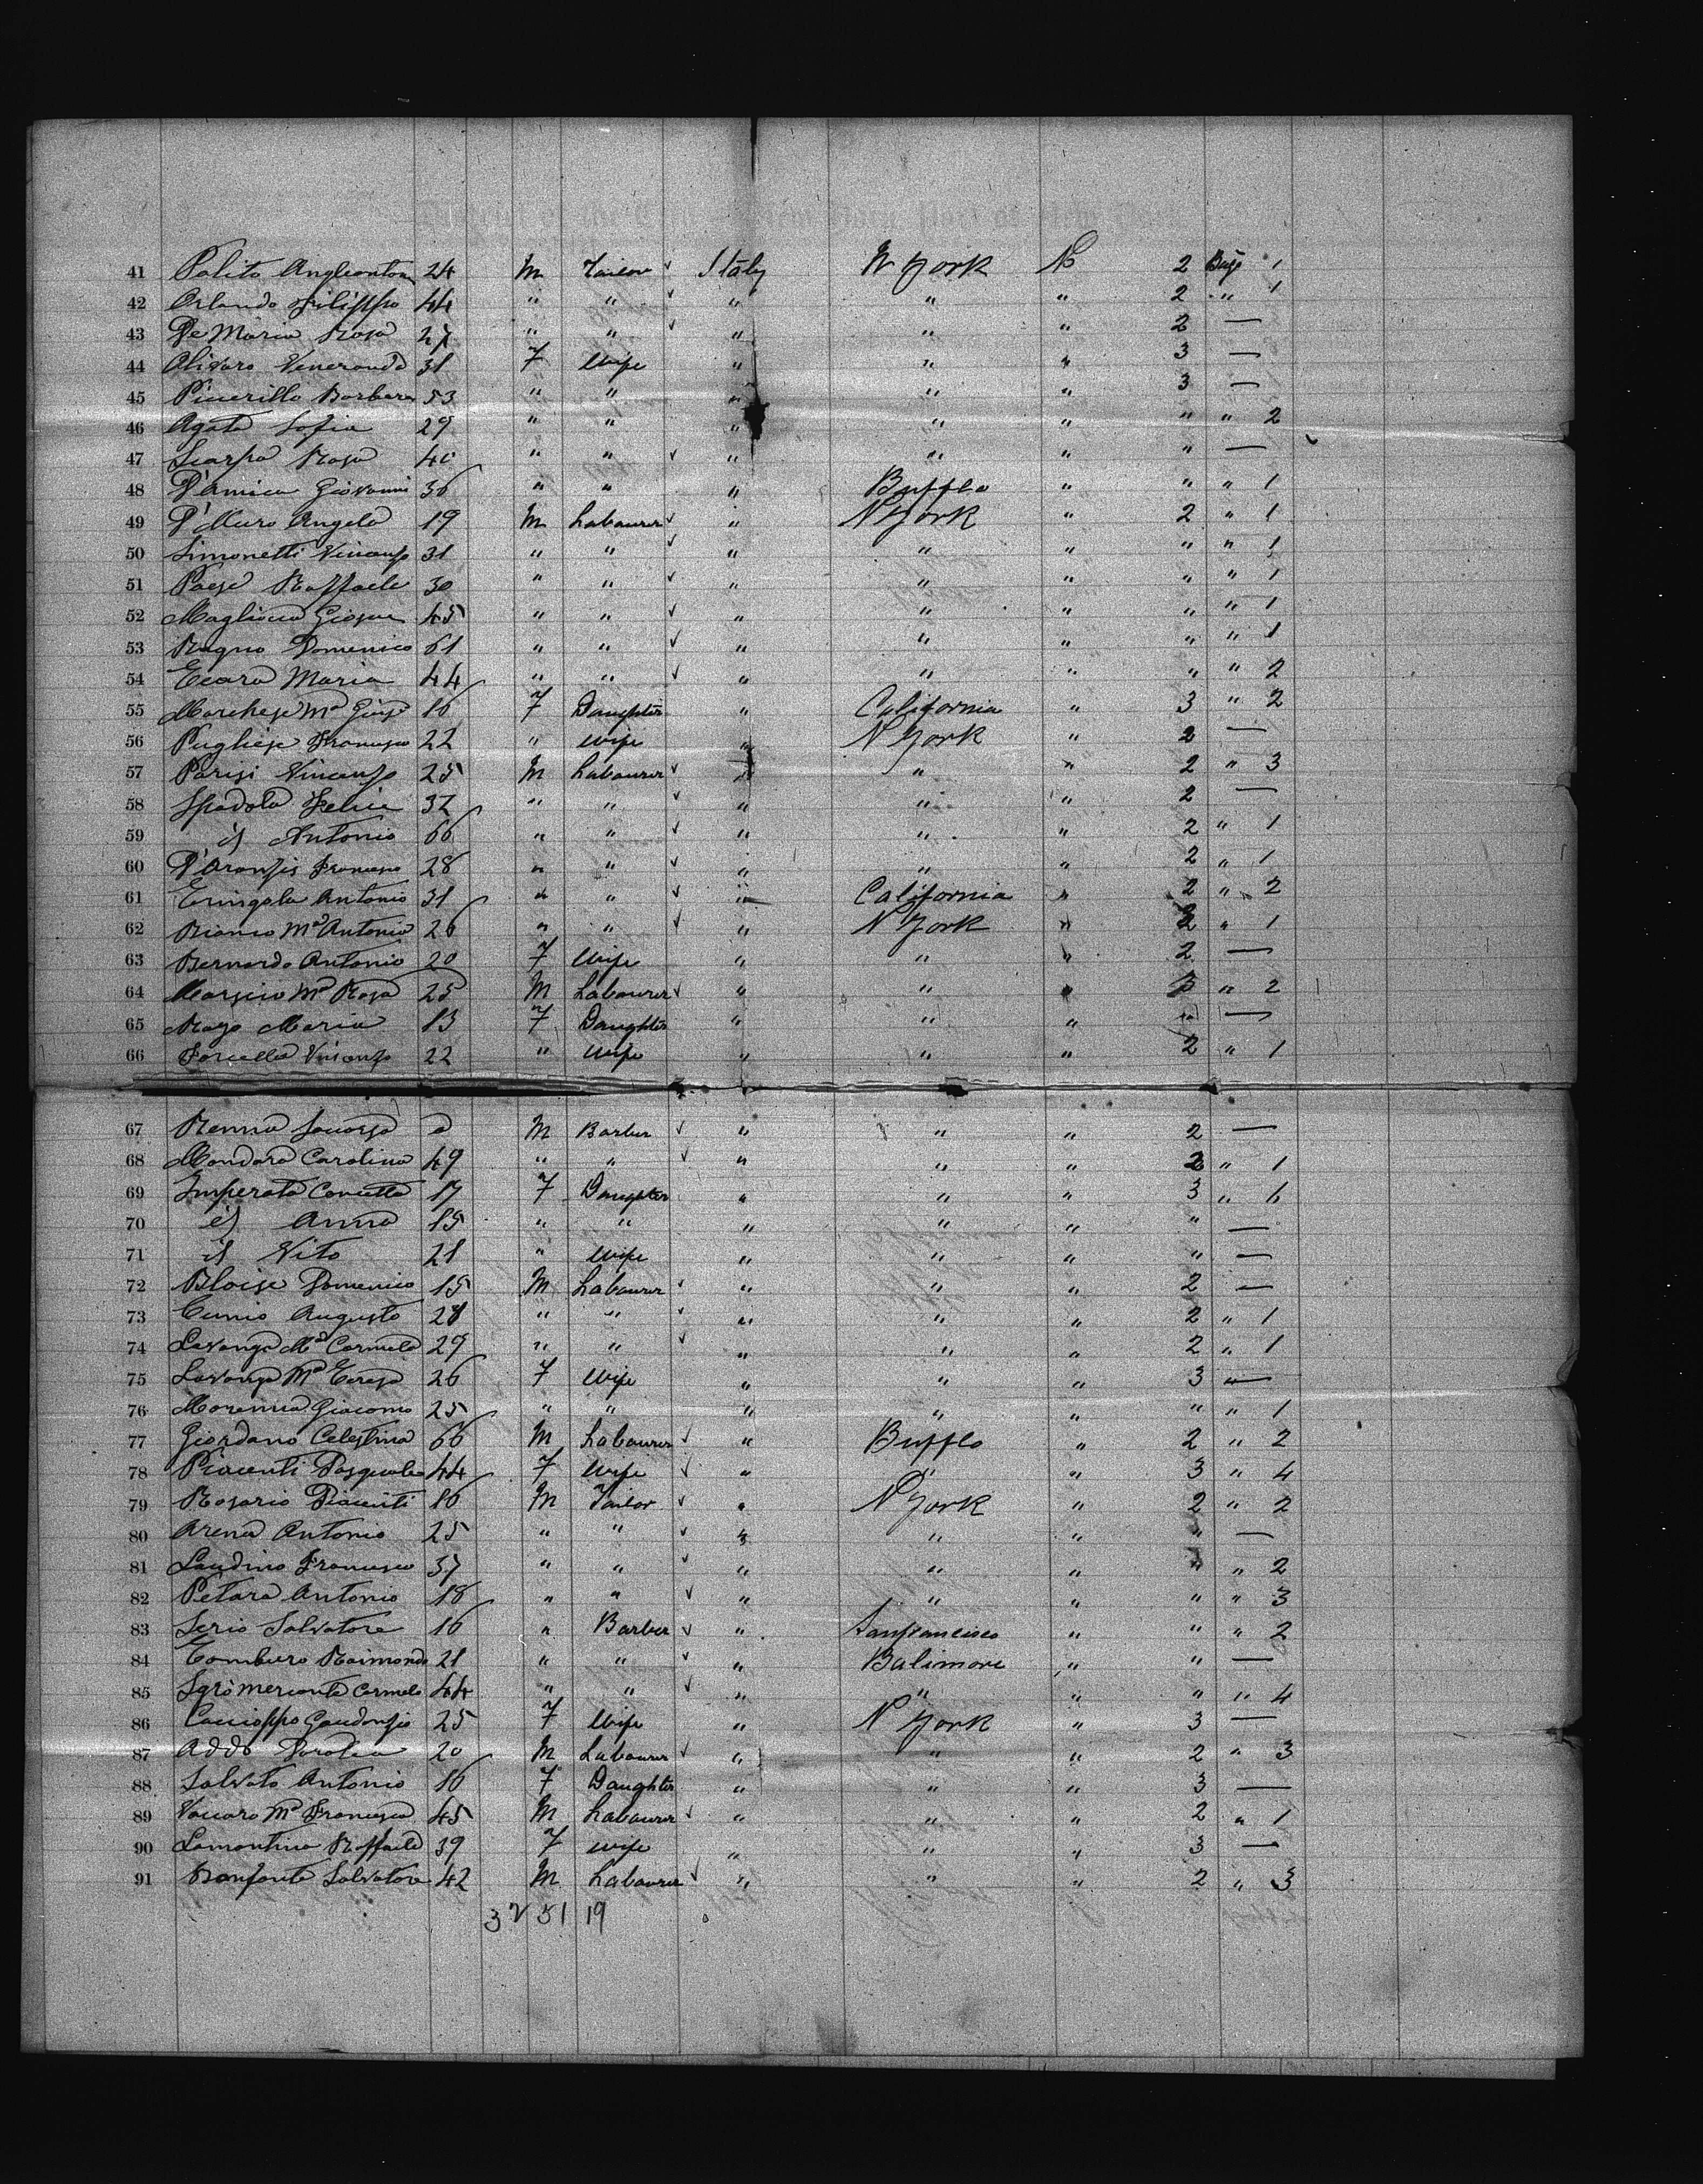 41 Polito Angleantom 24 M Tailor ✓ Italy N York No 2 Bags 1
42 Orlando Filippo 44 " " ✓ " " " 2 " 1
43 De Maria Rosa 27 " " ✓ " " " 2 —
44 Olivaro Veneranda 31 F Wife " " " 3 —
45 Piccirillo Barbara 53 " " " " " 3 —
46 Agata Sofia 29 " " " " " " " 2
47 Scarpa Rosa 40 " " ✓ " " " " —
48 D'Amica Giovanni 36 " " " Bufflo " " " 1
49 D'Muro Angelo 19 M Labourer ✓ " N York " 2 " 1
50 Simonetti Vincenzo 31 " " ✓ " " " " " 1
51 Paese Raffaele 30 " " ✓ " " " " " 1
52 Magliocca Giosue 45 " " ✓ " " " " " 1
53 Rugno Domenico 61 " " ✓ " " " " " 1
54 Ecara Maria 44 " " ✓ " " " " " 2
55 Marchese Ma Gius 16 F Daughter " California " 3 " 2
56 Pugliese Francesco 22 " Wife " N York " 2 —
57 Parisi Vincenzo 25 M Labourer ✓ " " " 2 " 3
58 Spadola Felice 32 " " ✓ " " " 2 —
59 id Antonio 66 " " ✓ " " " 2 " 1
60 D'Aronzis Francesco 28 " " ✓ " " " 2 " 1
61 Eringola Antonio 31 " " ✓ " California " 2 " 2
62 Bianco Ma Antonia 26 " " ✓ " N York " 2 " 1
63 Bernardo Antonio 20 F Wife " " " 2 —
64 Marsico Ma Rosa 25 M Labourer ✓ " " " 3 " 2
65 Rago Maria 13 F Daughter " " " " —
66 Forcella Vincenzo 22 " Wife " " " 2 " 1
67 Renna M Barber ✓ " " " 2 —
68 Mondara Carolina 49 " " ✓ " " " 2 " 1
69 Imperata Concetta 17 F Daughter " " " 3 " 6
70 id Anna 15 " " " " " " —
71 id Vito 21 " Wife " " " " —
72 Bloise Domenico 15 M Labourer ✓ " " " 2 —
73 Cunio Augusto 28 " " ✓ " " " 2 " 1
74 Lavanga Ma Carmela 29 " " ✓ " " " 2 " 1
75 Lavanga Ma Teresa 26 F Wife " " " 3 —
76 Moremma Giacomo 25 " " " " " " " 1
77 Giordano Celestina 66 M Labourer ✓ " Bufflo " 2 " 2
78 Piacenti Pasquale 44 F Wife ✓ " " " 3 " 4
79 Rosario Piacenti 16 M Tailor ✓ " N York " 2 " 2
80 Arena Antonio 25 " " ✓ " " " " —
81 Laudino Francesco 37 " " ✓ " " " " " 2
82 Petara Antonio 18 " " ✓ " " " " " 3
83 Serio Salvatore 16 " Barber ✓ " Sanfrancisco " " " 2
84 Tomburo Raimondo 21 " " ✓ " Balimore " " —
85 Sgrò Mercante Carmelo 44 " " ✓ " " " " " 4
86 Caccioppo Gaudonzio 25 F Wife " N York " 3 —
87 Addo Dorotea 20 M Labourer ✓ " " " 2 " 3
88 Salvato Antonio 16 F Daughter " " " 3 —
89 Vaccaro Ma Francesca 45 M Labourer ✓ " " " 2 " 1
90 Lamantina Raffaele 39 F Wife " " " 3 —
91 Bonfante Salvatore 42 M Labourer ✓ " " " 2 " 3
32 51 19